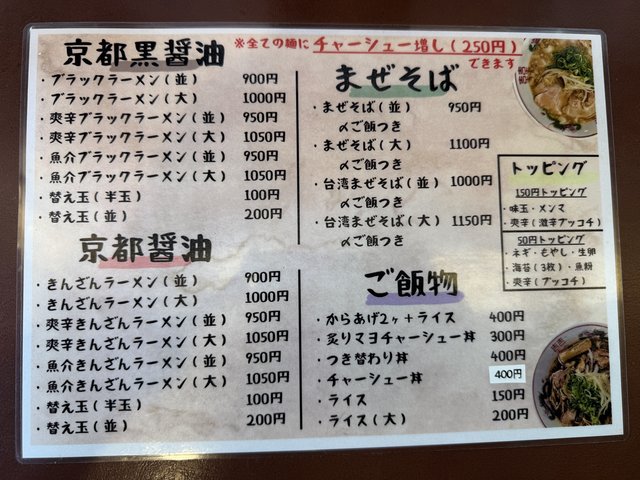 ※全ての麺にチャーシュー増し(250円)
できます
京都黒醤油
・ブラックラーメン(並) 900円
・ブラックラーメン(大) 1000円
・爽辛ブラックラーメン(並) 950円
・爽辛ブラックラーメン(大) 1050円
・魚介ブラックラーメン(並) 950円
・魚介ブラックラーメン(大) 1050円
・替え玉(半玉) 100円
・替え玉(並) 200円
京都醤油
・きんざんラーメン(並) 900円
・きんざんラーメン(大) 1000円
・爽辛きんざんラーメン(並) 950円
・爽辛きんざんラーメン(大) 1050円
・魚介きんざんラーメン(並) 950円
・魚介きんざんラーメン(大) 1050円
・替え玉(半玉) 100円
・替え玉(並) 200円
まぜそば
・まぜそば(並) 950円
〆ご飯つき
・まぜそば(大) 1100円
〆ご飯つき
・台湾まぜそば(並) 1000円
〆ご飯つき
・台湾まぜそば(大) 1150円
〆ご飯つき
ご飯物
・からあげ2ヶ+ライス 400円
・炙りマヨチャーシュー丼 300円
・つき替わり丼 400円
・チャーシュー丼 400円
・ライス 150円
・ライス(大) 200円
トッピング
150円トッピング
・味玉・メンマ
・爽辛(激辛ブッコチ)
50円トッピング
・ネギ・もやし・生卵
・海苔(3枚)・魚粉
・爽辛(ブッコチ)